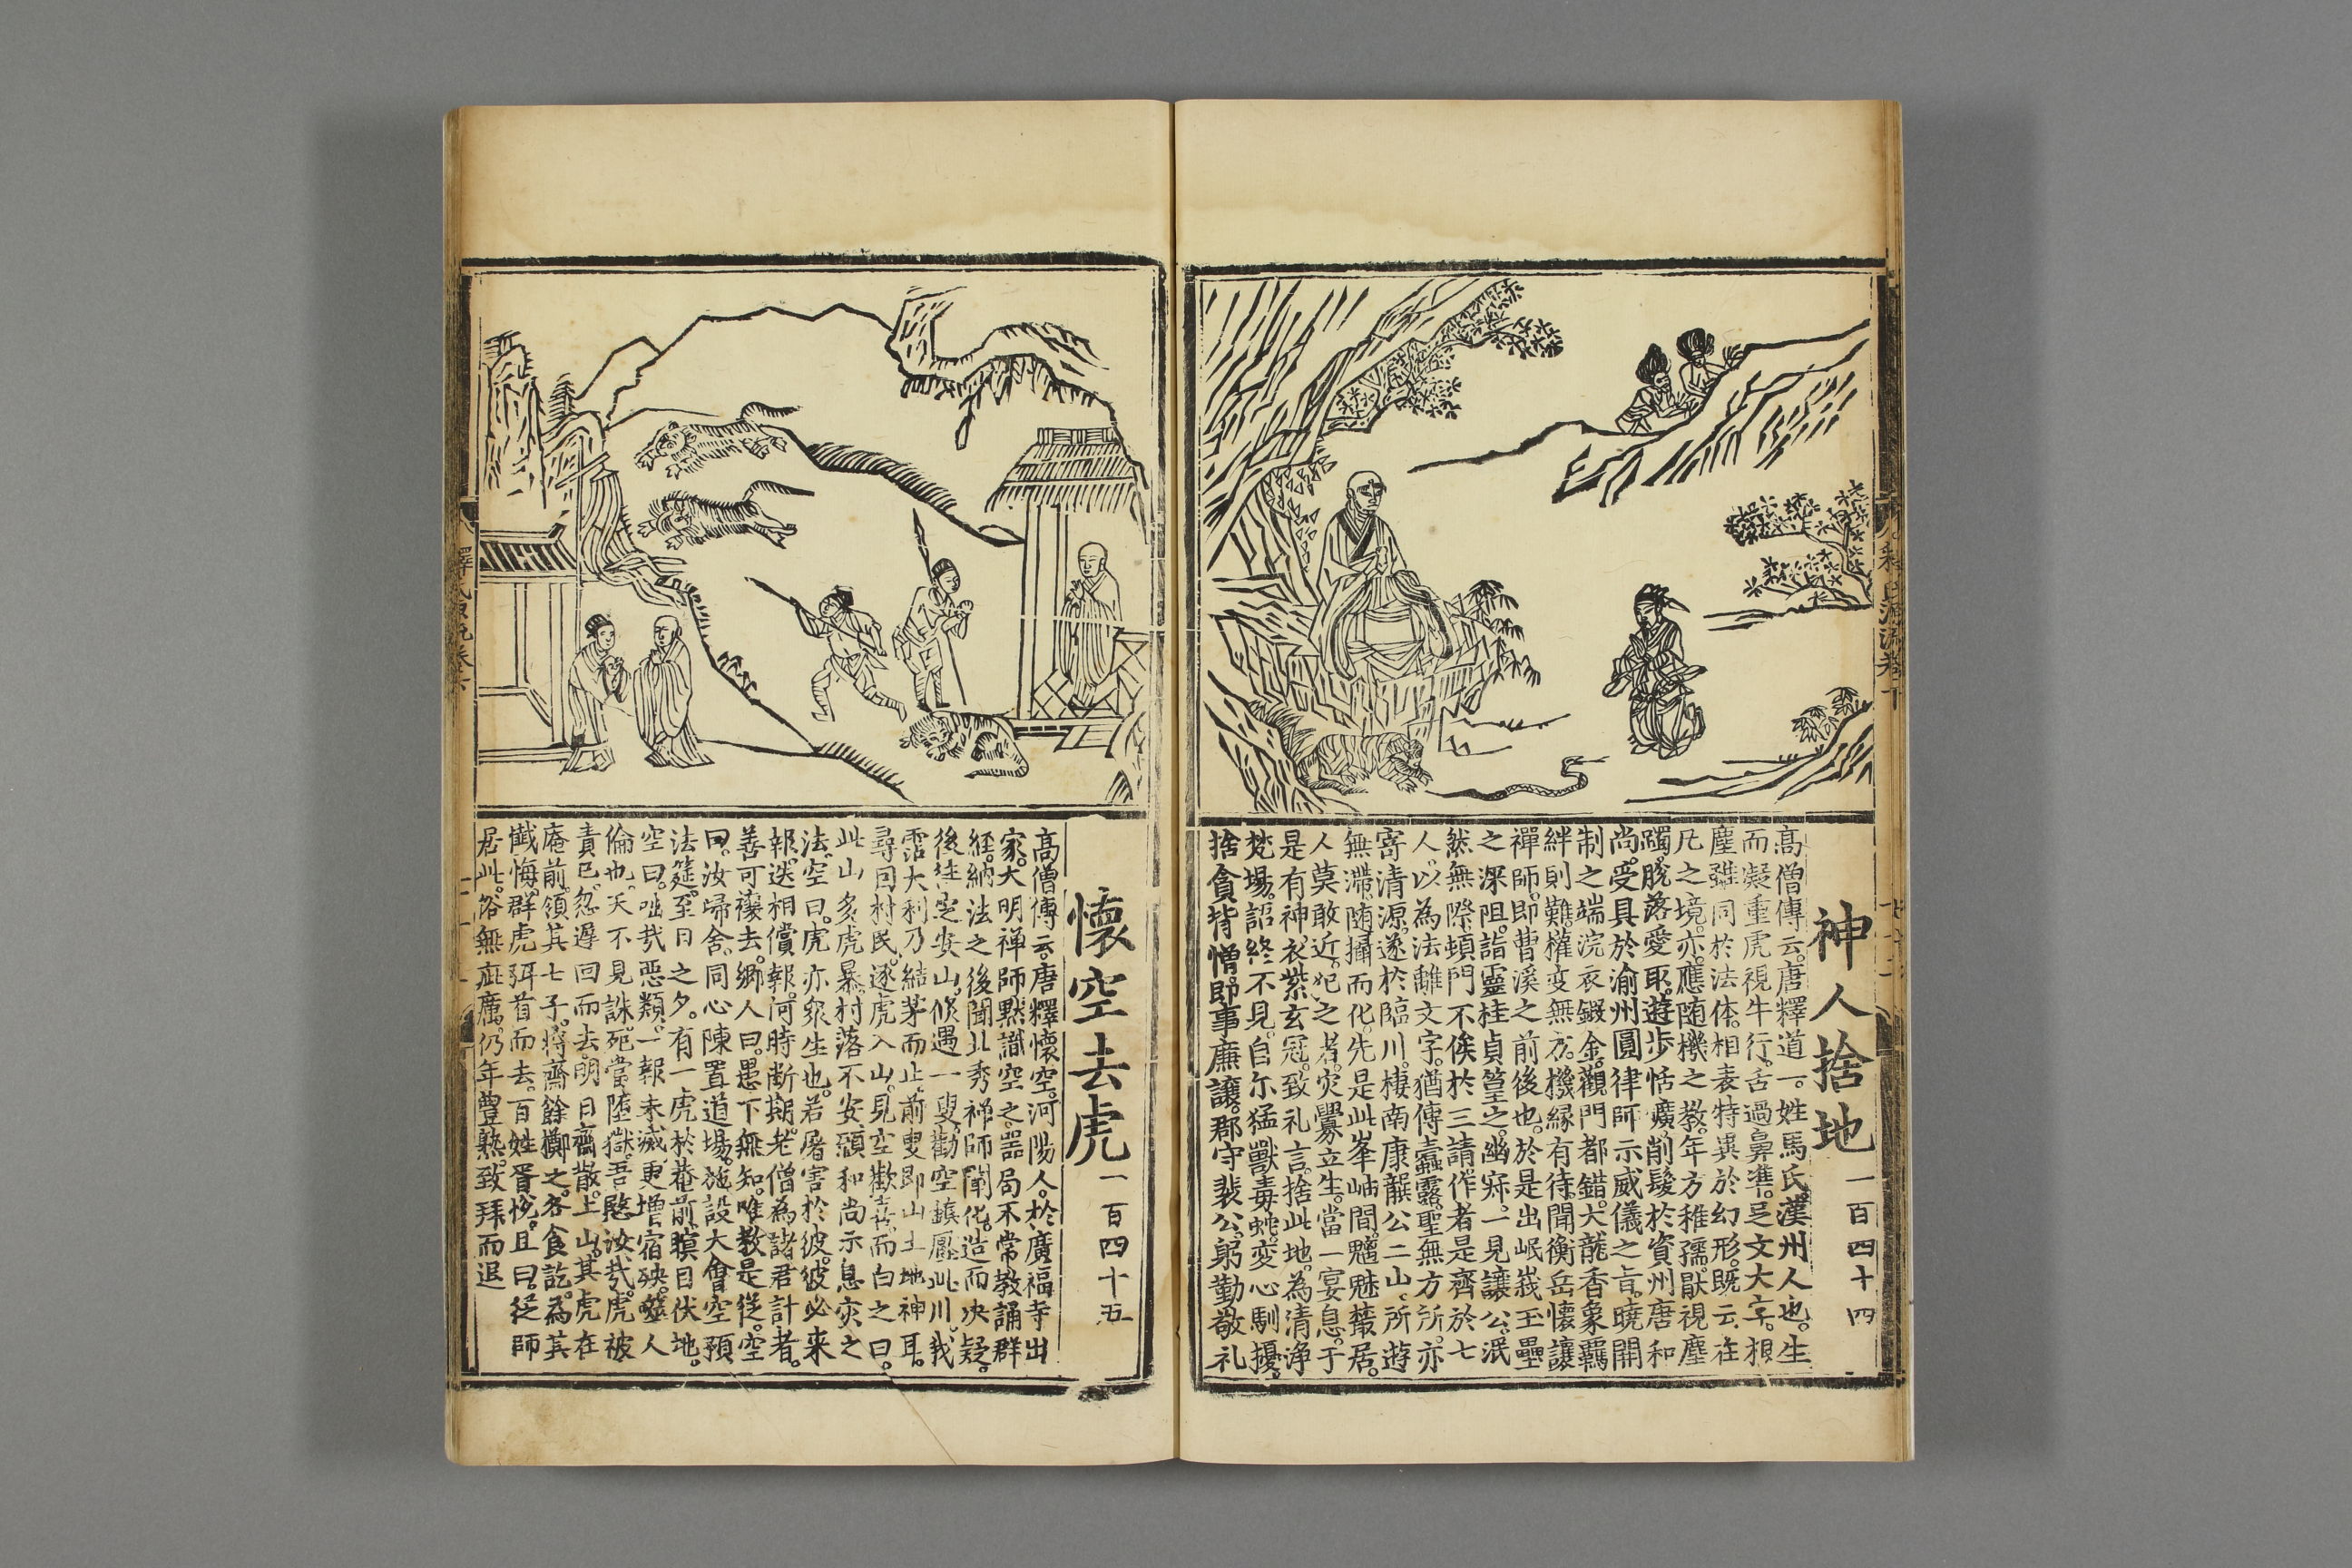 神人捨地 一百四十四
高僧傳云。唐釋道一。姓馬氏。漢州人也。生
而凝重。虎視牛行。舌過鼻準。足文大字。根
塵雖同於法体。相表特異於幻形。既云在
凡之境。亦應随機之教。年方稚孺。猒視塵
躅。脫落愛取。遊步恬曠。削髮於資州唐和
尚。受具於渝州圓律師。示威儀之旨。曉開
制之端。浣衣鍛金。觀門都錯。大龍香象羈
絆則難。權变無方。機縁有待。聞衡岳懷讓
禪師。即曹溪之前後也。於是出岷峩玉壘
之深阻。詣靈桂貞篁之幽寂。一見讓公。泯
然無際。頓門不俟於三請。作者是齊於七
人。以為法離文字。猶傳蠹露。聖無方所。亦
寄清源。遂於臨川。棲南康龔公二山。所遊
無滯。随攝而化。先是此峯岫間。魑魅叢居。
人莫敢近。犯之者。灾釁立生。當一宴息。于
是有神。衣紫玄冠。致礼言。捨此地。為清浄
梵場。詔終不見。自尔猛獸毒蛇。変心馴擾。
捨貪背憎。即事廉讓。郡守裴公。躬勤敬礼
懷空去虎 一百四十五
高僧傳云。唐釋懷空。河陽人。於廣福寺出
家。大明禅師黙識空之器局不常。教誦群
經。納法之後。聞北秀禅師闡化。造而决疑。
後往定安山。倐遇一叟。勸空鎮壓此川。我
霑大利。乃結茅而止。前叟即山土地神耳。
尋回村民。逐虎入山。見空歡喜。而白之曰。
此山多虎暴。村落不安。願和尚示息灾之
法。空曰。虎亦衆生也。若屠害於彼。彼必来
報。迭相償報。何時断期。老僧為諸君計者。
善可禳去。郷人曰。愚下無知。唯教是從。空
曰。汝埽舍。同心陳置道場。施設大會。空預
法筵。至日之夕。有一虎於菴前。瞑目伏地。
空曰。咄㢤惡類。一報未滅。更增宿殃。噬人
倫也。天不見誅。死當墮獄。吾愍汝㢤。虎被
責已。忽遲回而去。明日齋散。上山。其虎在
庵前。領其七子。将齋餘擲之。各食訖。為其
懴悔。群虎弭首而去。百姓胥悅。且曰。從師
居此。俗無疵癘。仍年豊熟。致拜而退